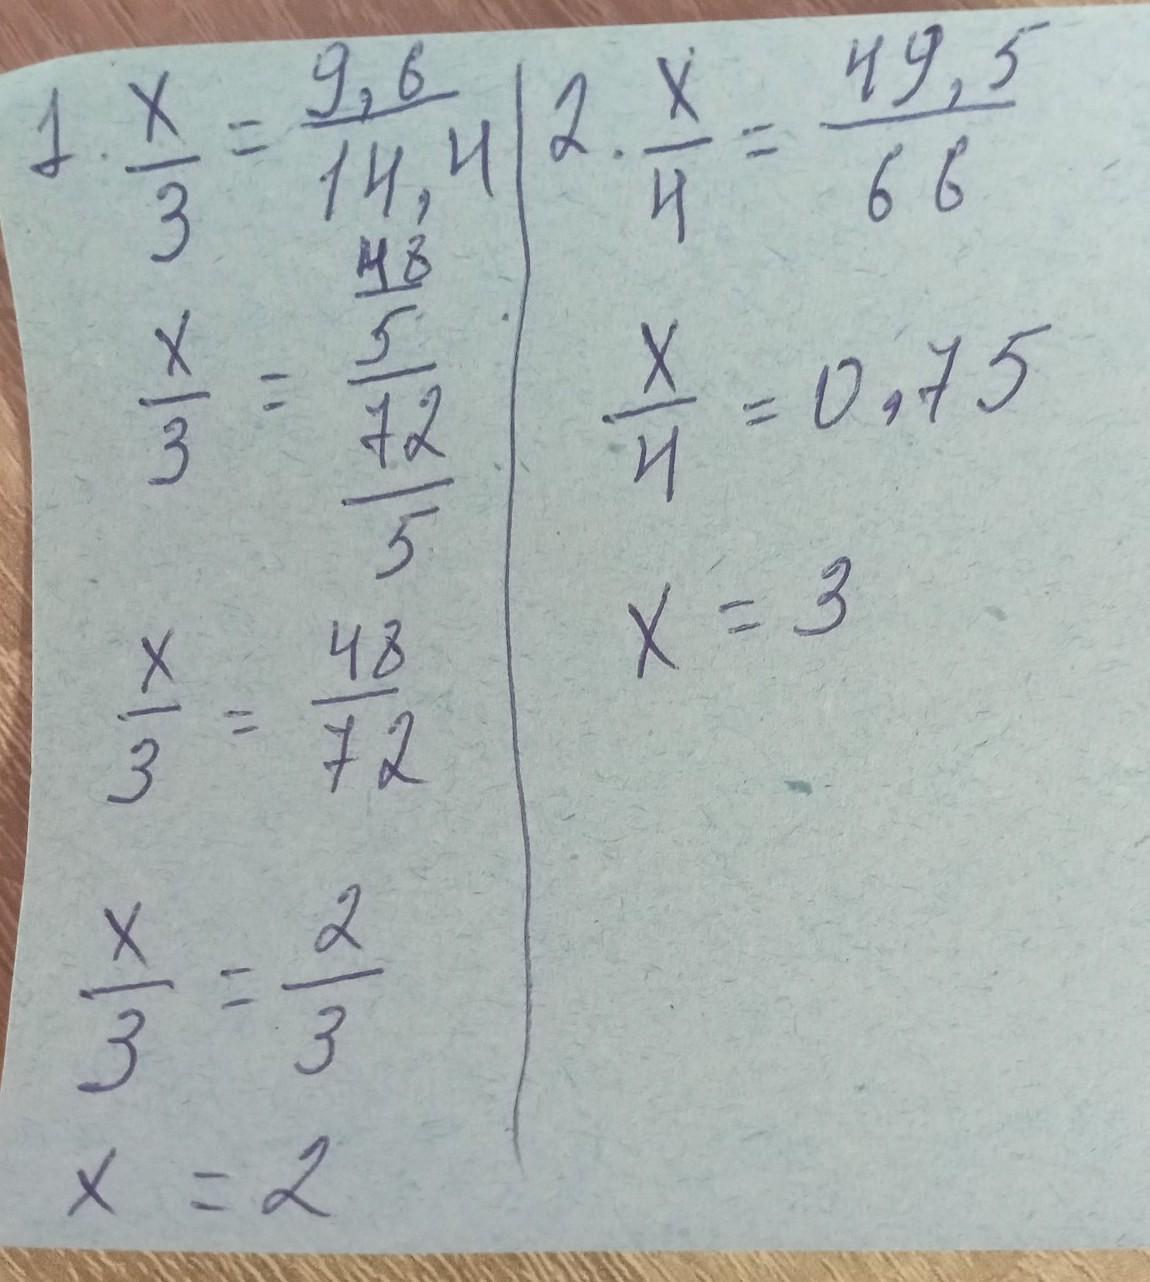 1. x/3 = 9,6/14,4
x/3 = 48/5/72/5
x/3 = 48/72
x/3 = 2/3
x = 2
2. x/4 = 49,5/66
x/4 = 0,75
x = 3